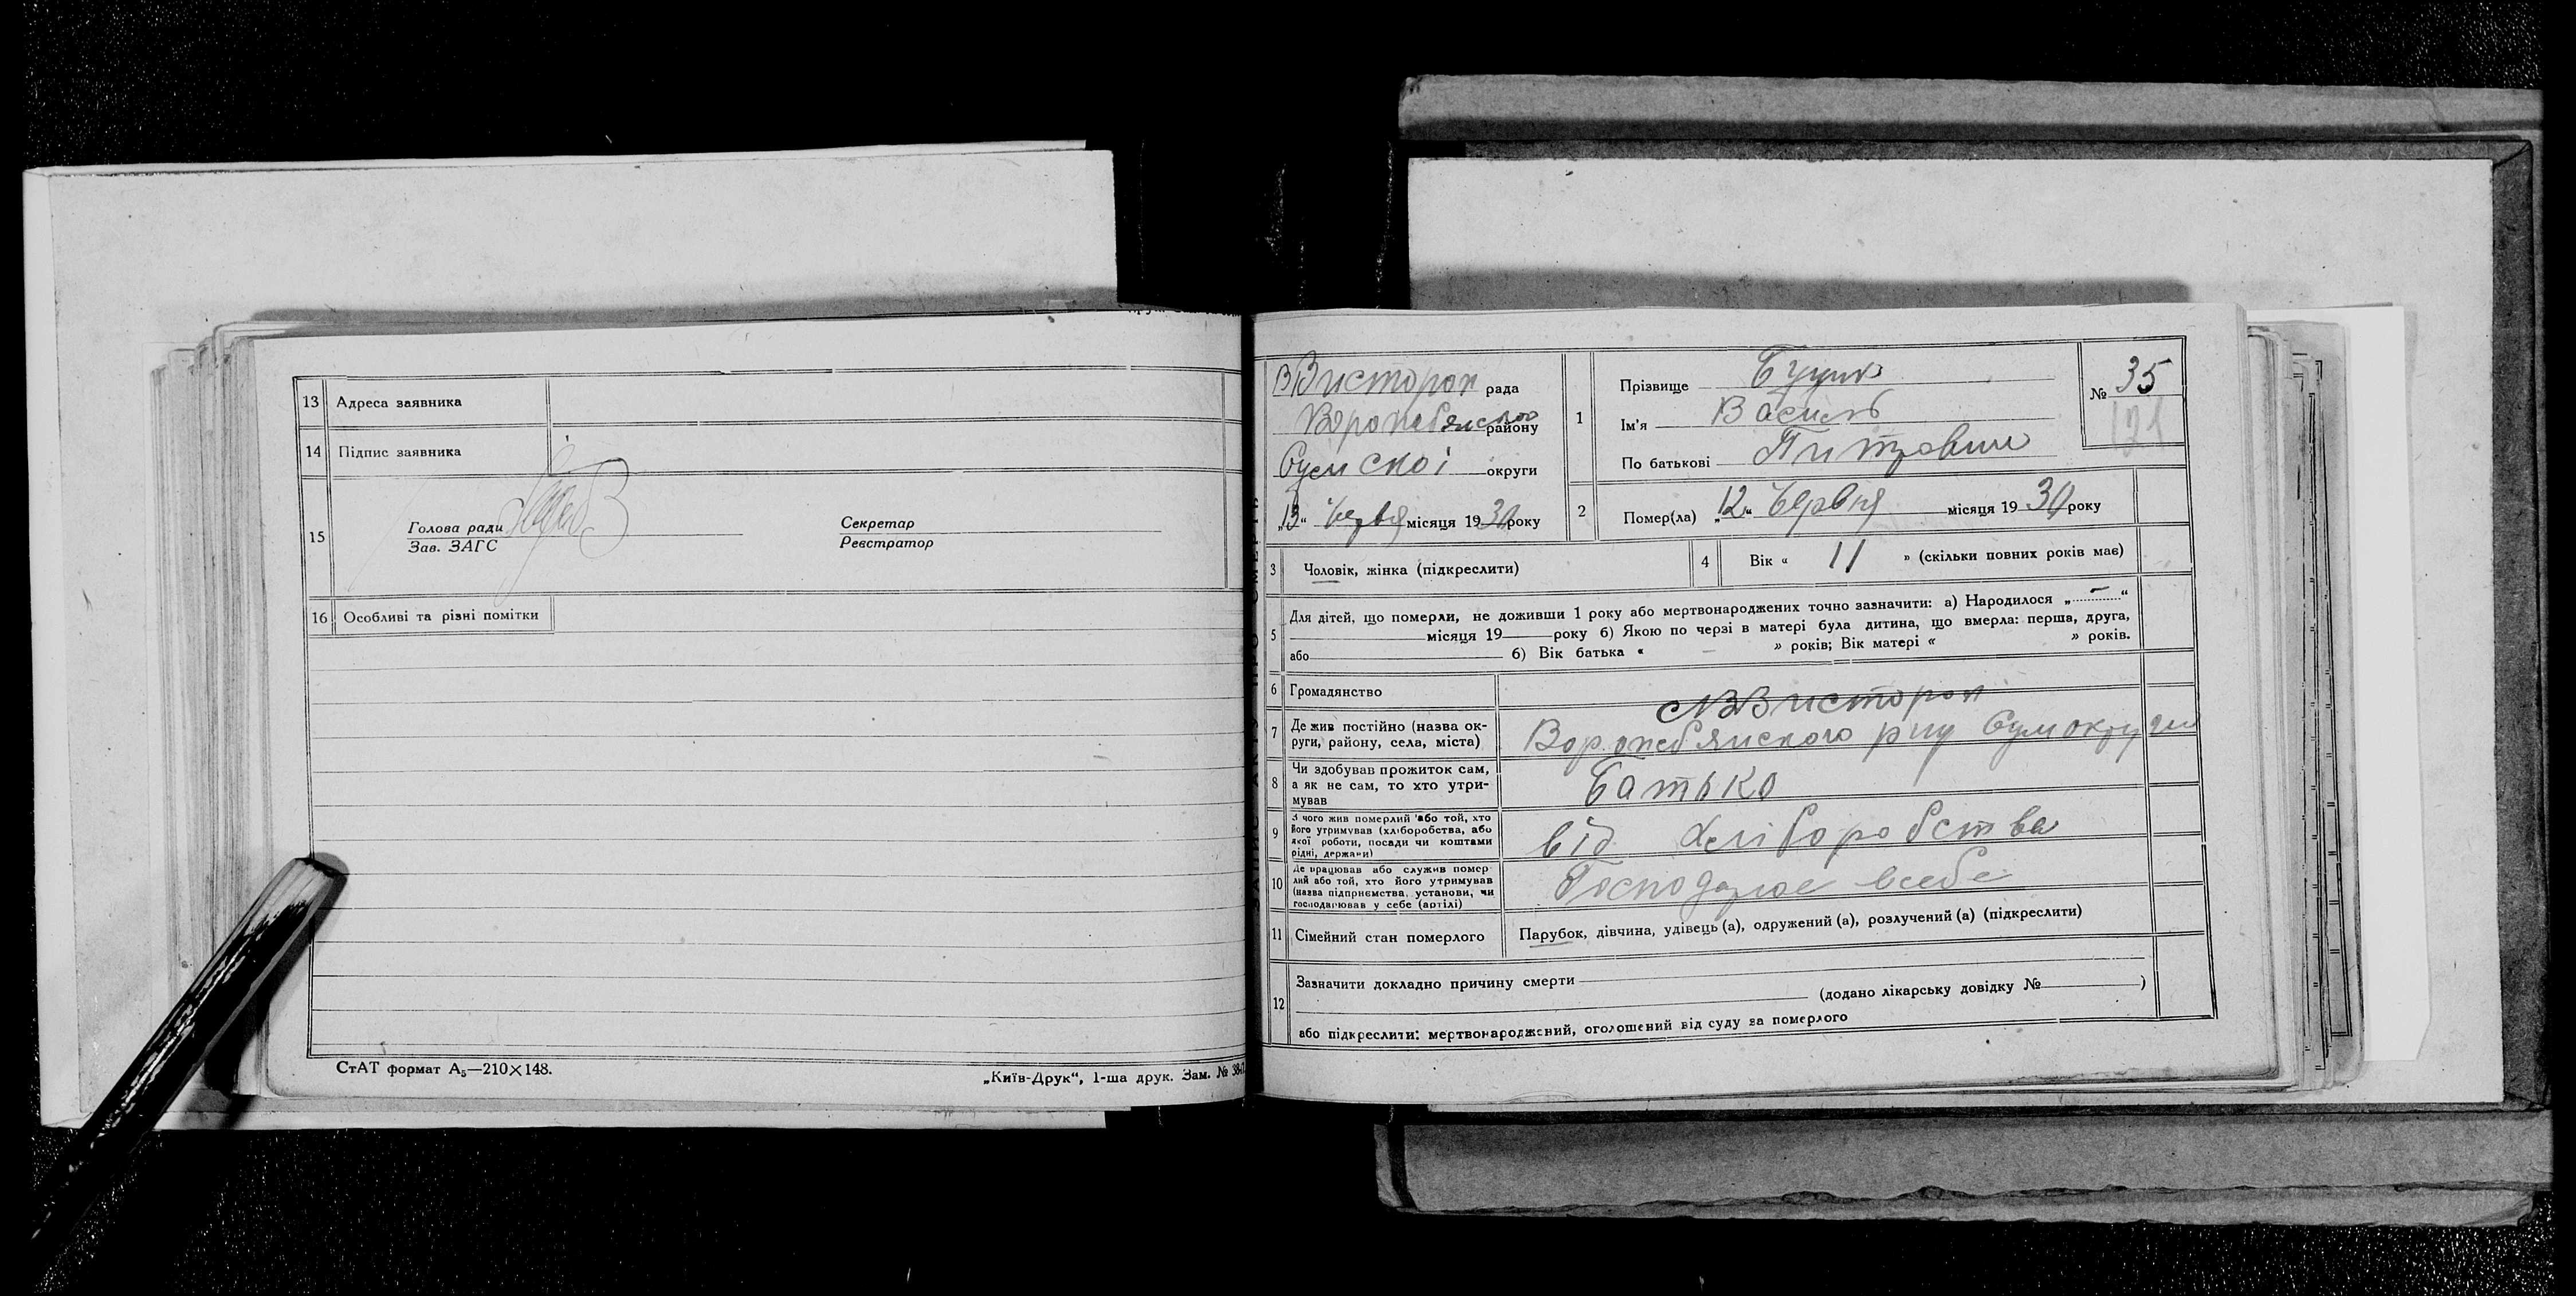 13 Адреса заявника
14 Підпис заявника
15 Голова ради
Зав. ЗАГС
Секретар
Реєстратор
16 Особливі та різні помітки
СтАТ формат А₅—210×148.
„Київ-Друк“, 1-ша друк. Зам. №
ВВисторон рада
району
Сумскоі округи
„13“ місяця 1930 року
1 Прізвище
Ім'я Василь
По батькові Питрович
№ 35
121
2 Помер(ла) „12“ Червня місяця 1930 року
3 Чоловік, жінка (підкреслити)
4 Вік « 11 » (скільки повних років має)
5 Для дітей, що померли, не доживши 1 року або мертвонароджених точно зазначити: а) Народилося „ – “
місяця 19 року б) Якою по черзі в матері була дитина, що вмерла: перша, друга,
або б) Вік батька « – » років; Вік матері « » років.
6 Громадянство
7 Де жив постійно (назва ок-
руги, району, села, міста)
ВВисторон
8 Чи здобував прожиток сам,
а як не сам, то хто утри-
мував
Батько
9 З чого жив померлий або той, хто
його утримував (хліборобства, або
якої роботи, посади чи коштами
рідні, держави)
від хліборобства
10 Де працював або служив помер-
лий або той, хто його утримував
(назва підприємства, установи, чи
господарював у себе (артілі)
всебе
11 Сімейний стан померлого
Парубок, дівчина, удівець (а), одружений (а), розлучений (а) (підкреслити)
12 Зазначити докладно причину смерти
(додано лікарську довідку № )
або підкреслити: мертвонароджений, оголошений від суду за померлого